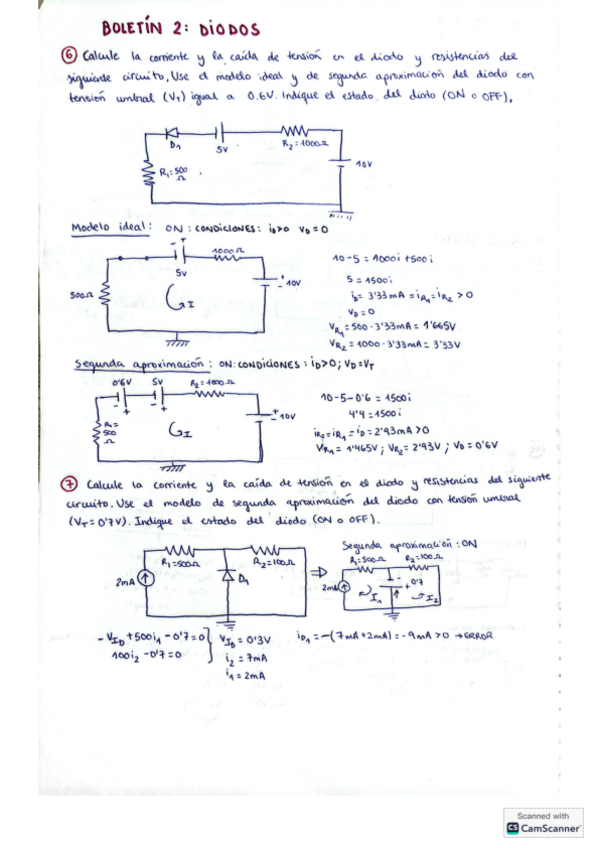 BOLETÍN 2: DIODOS
⑥ Calcule la corriente y la caída de tensión en el diodo y resistencias del
siguiente circuito. Use el modelo ideal y de segunda aproximación del diodo con
tensión umbral (VT) igual a 0.6V. Indique el estado del diodo (ON o OFF).
D1
5V
R2=1000Ω
R1=500
Ω
10V
Modelo ideal: ON: CONDICIONES: iD>0 VD=0
- +
1000Ω
5V
500Ω
I
+
-
10V
10-5 = 1000i +500i
5 = 1500i
iD= 3'33mA = iR1=iR2 > 0
VD=0
VR1=500·3'33mA = 1'665V
VR2= 1000·3'33mA = 3'33V
Segunda aproximación: ON: CONDICIONES: iD>0; VD=VT
0'6V 5V R2=1000Ω
- + - +
R1=
500
Ω
I
+
-
10V
10-5-0'6 = 1500i
4'4=1500i
iR2=iR1=iD=2'93mA >0
VR1= 1'465V; VR2= 2'93V; VD=0'6V
⑦ Calcule la corriente y la caída de tensión en el diodo y resistencias del siguiente
circuito. Use el modelo de segunda aproximación del diodo con tensión umbral
(VT=0'7V). Indique el estado del diodo (ON o OFF).
R1=500Ω
R2=100Ω
2mA
D1
⇒
Segunda aproximación: ON
R1=500Ω R2=100Ω
2mA
-
+ 0'7
I1
I2
- VID +500i1 -0'7=0
100i2 -0'7=0
VID=0'3V
i2 = 7mA
i1=2mA
iD1=-(7mA+2mA)=-9mA >0 → ERROR
Scanned with
CS CamScanner